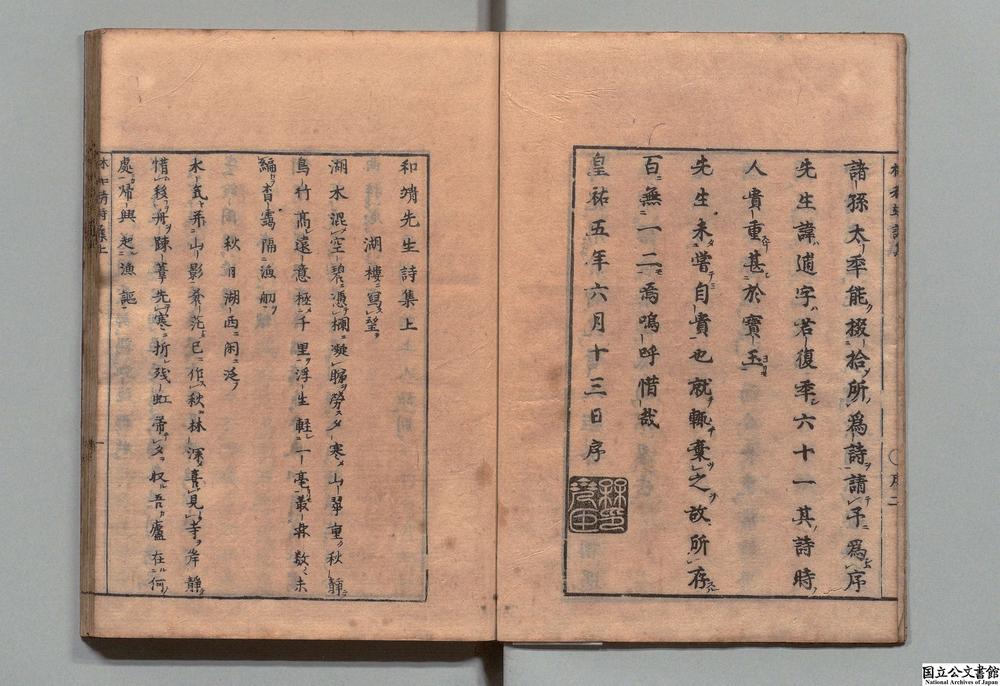 諸孫大年能掇拾所爲詩請予爲序
先生諱逋字君復年六十一其詩時
人貴重甚於寶玉
先生未嘗自貴也就輒棄之故所存
百無一二焉嗚呼惜哉
皇祐五年六月十三日序
和靖先生詩集上
湖樓寫望
湖水混空碧憑欄凝睇勞夕寒山翠重秋靜
鳥行高遠意極千里浮生輕一毫叢林數未
徧杳靄隔漁舠
秋日湖西閑泛
水氣并山影蒼茫已作秋林深喜見寺岸靜
惜移舟疎葦先寒折殘虹帶夕收吾廬在何
處歸興起漁謳
林和靖詩集上
国立公文書館
National Archives of Japan